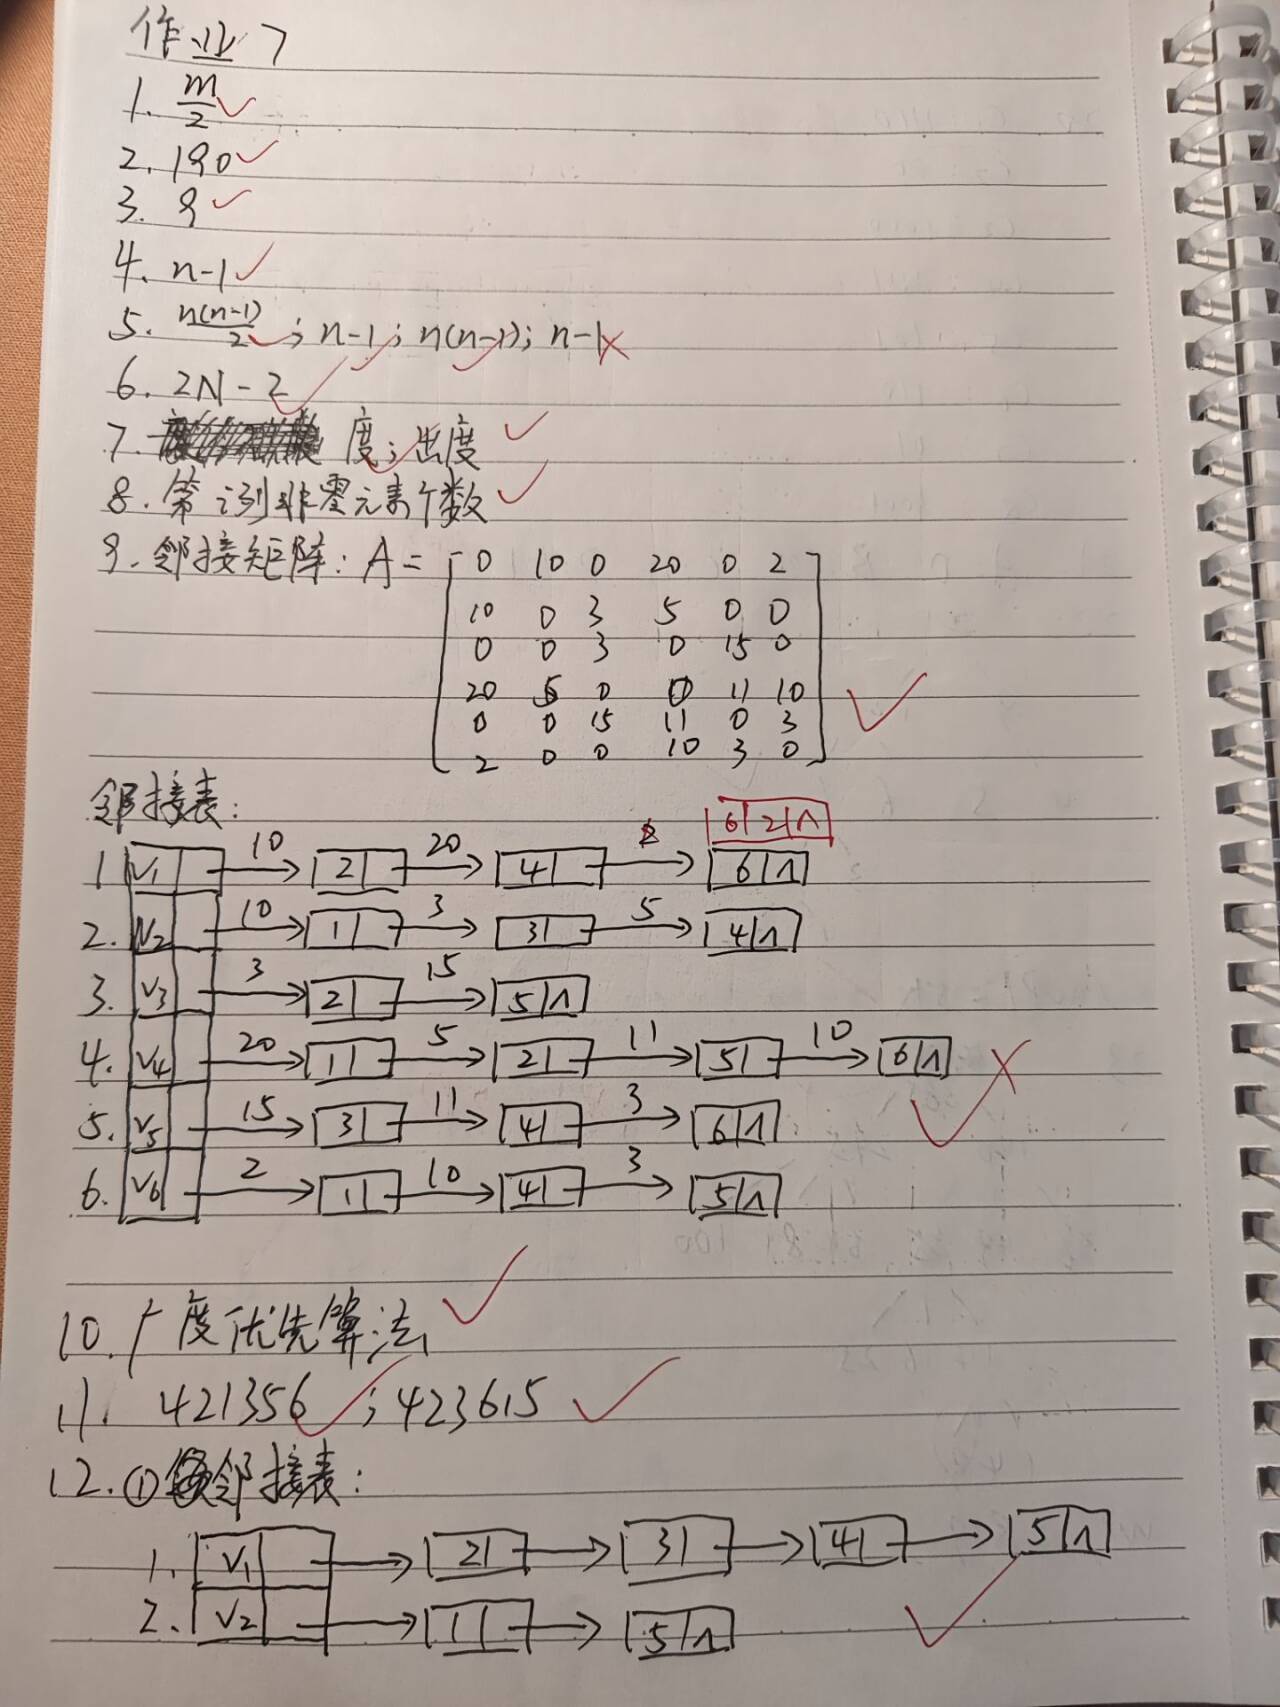 作业7
1. m/2 ✓
2. 190 ✓
3. 9 ✓
4. n-1 ✓
5. n(n-1)/2 ✓; n-1 ✓; n(n-1) ✓; n-1 ×
6. 2N-2 ✓
7. 度 ✓; 出度 ✓
8. 第i列非零元素个数 ✓
9. 邻接矩阵: A = [0 10 0 20 0 2
10 0 3 5 0 0
0 0 3 0 15 0
20 5 0 0 11 10 ✓
0 0 15 11 0 3
2 0 0 10 3 0]
邻接表:
6|2|∧
1 |V1| | 10→ |2| | 20→ |4| | 2→ |6|∧|
2. |V2| | 10→ |1| | 3→ |3| | 5→ |4|∧|
3. |V3| | 3→ |2| | 15→ |5|∧|
4. |V4| | 20→ |1| | 5→ |2| | 11→ |5| | 10→ |6|∧| ×
5. |V5| | 15→ |3| | 11→ |4| | 3→ |6|∧| ✓
6. |V6| | 2→ |1| | 10→ |4| | 3→ |5|∧|
10. 广度优先算法 ✓
11. 421356 ✓; 423615 ✓
12. ① 邻接表:
1. |V1| | → |2| | → |3| | → |4| | → |5|∧|
2. |V2| | → |1| | → |5|∧| ✓